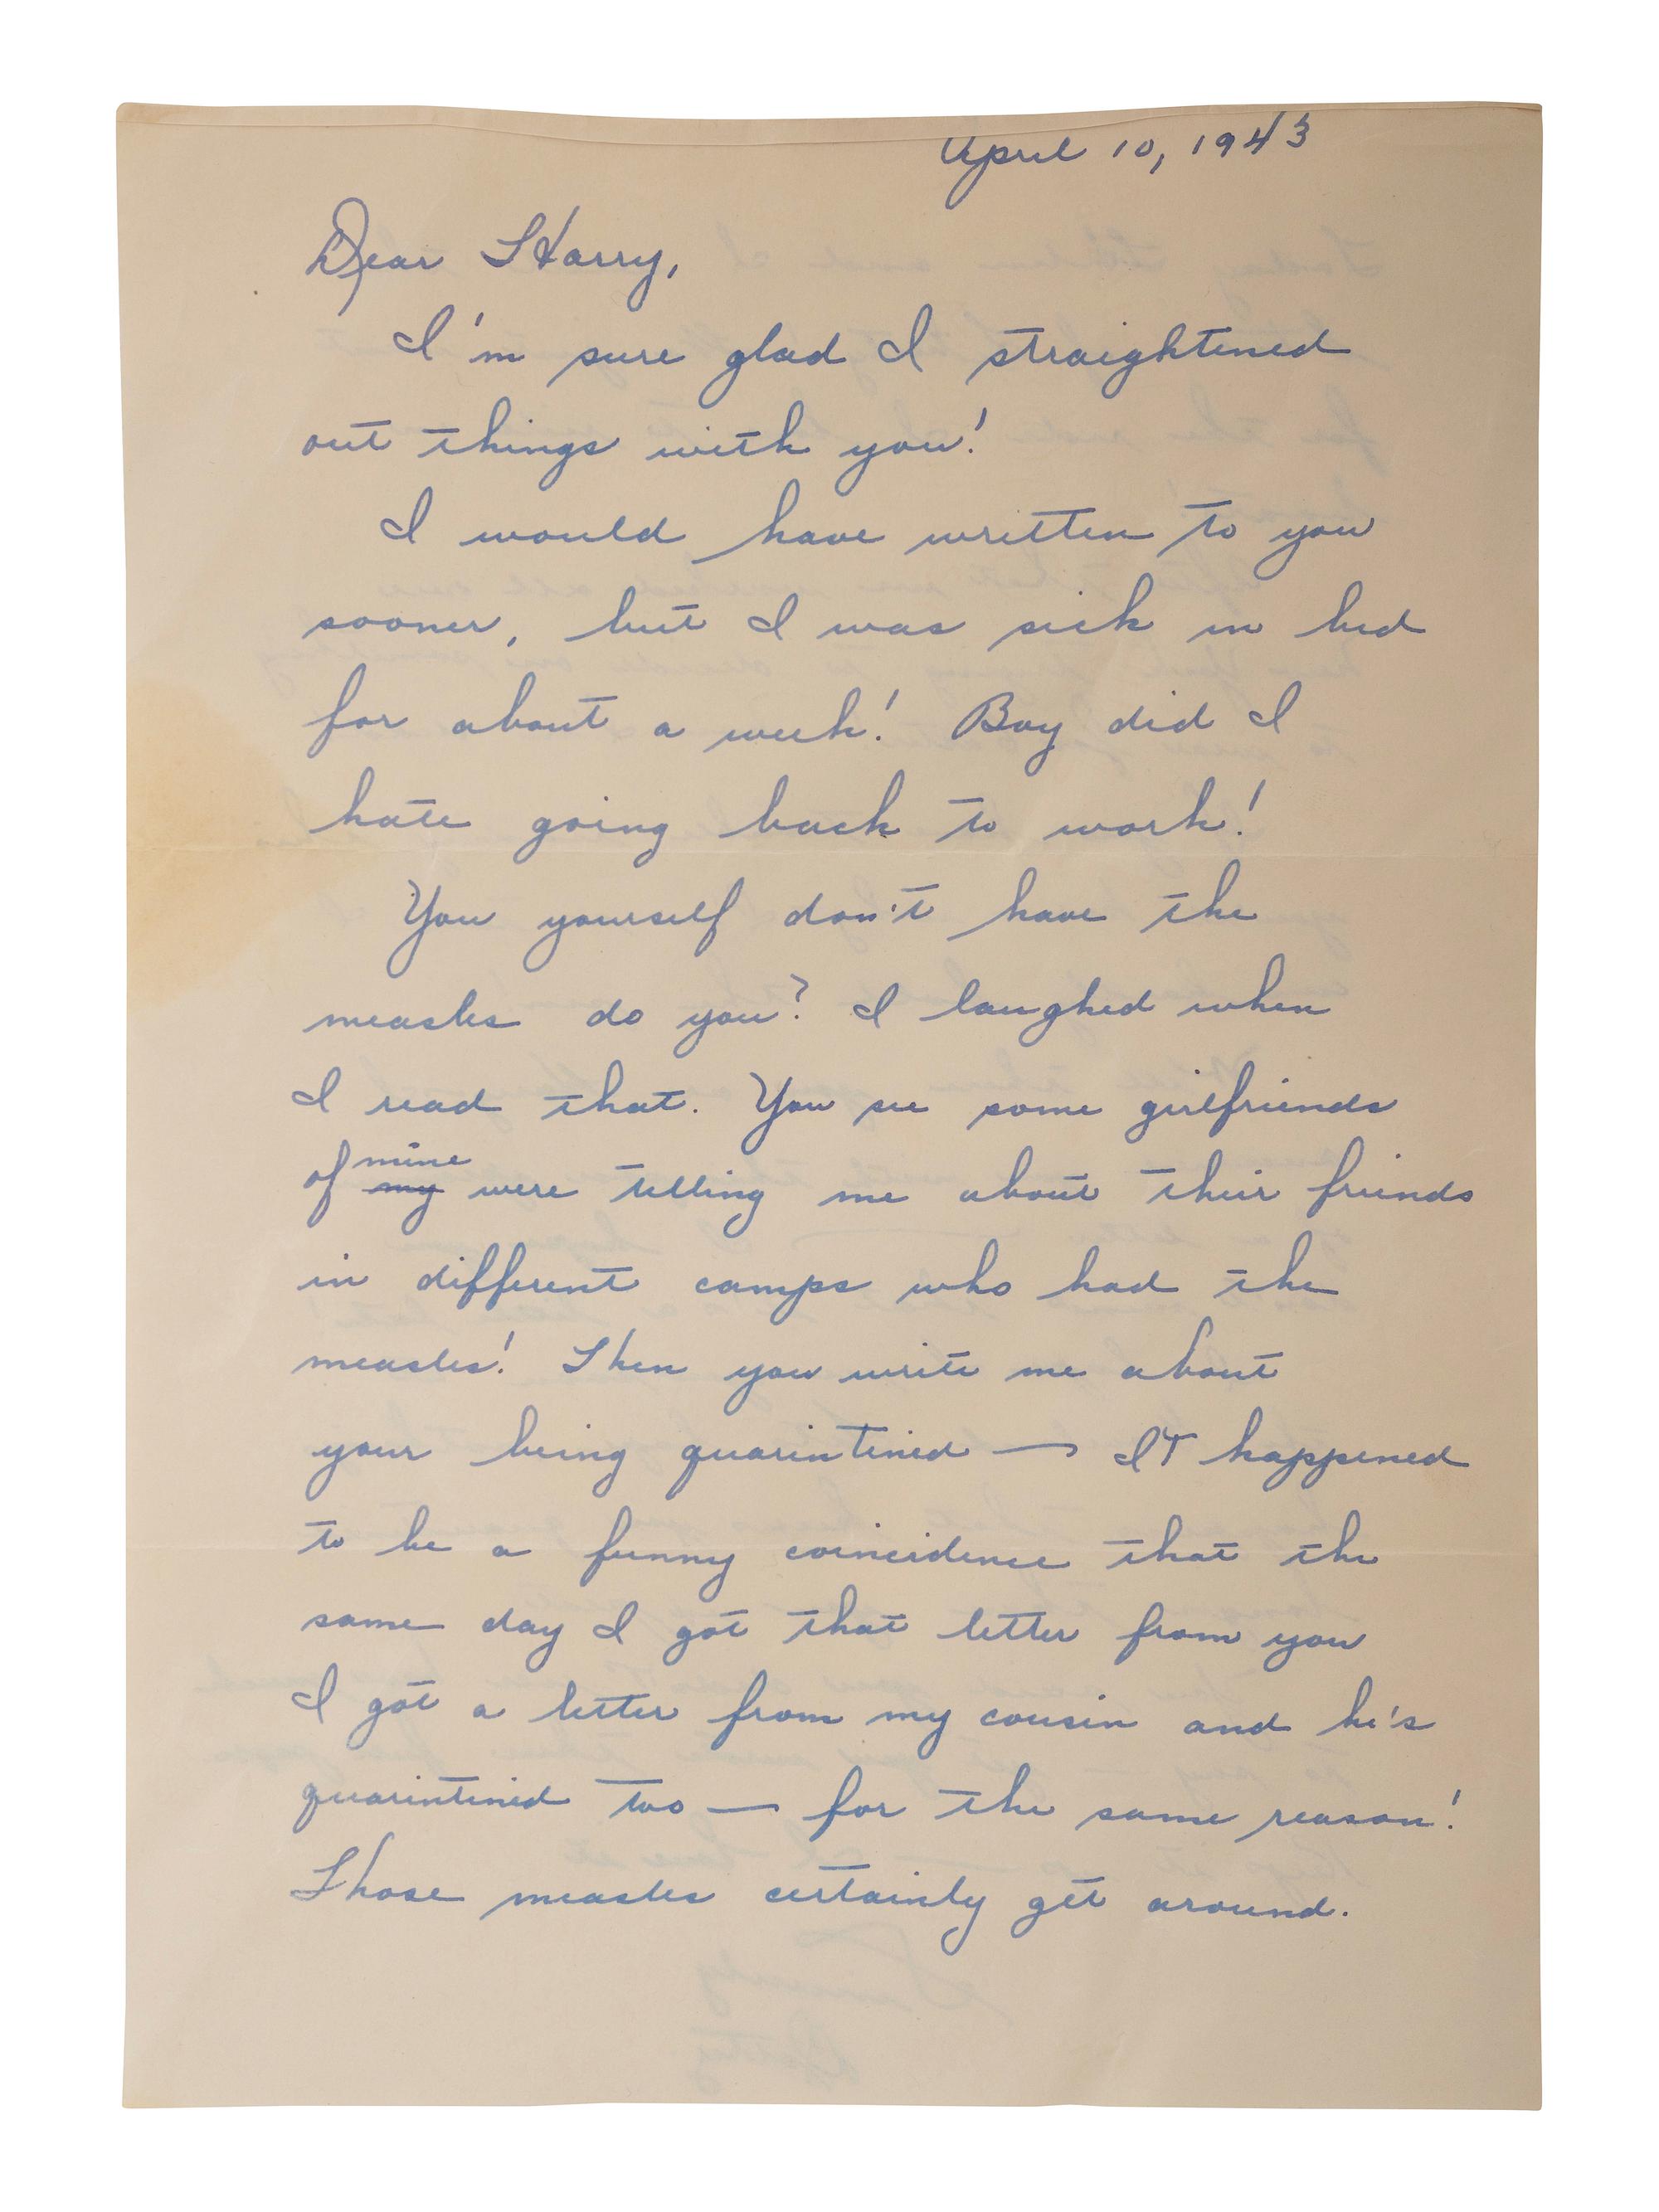 April 10, 1943
Dear Harry,
I'm sure glad I straightened
out things with you!
I would have written to you
sooner, but I was sick in bed
for about a week! Boy did I
hate going back to work!
You yourself don't have the
measles do you? I laughed when
I read that. You see some girlfriends
of my mine were telling me about their friends
in different camps who had the
measles! Then you write me about
your being quarintined — It happened
to be a funny coincidence that the
same day I got that letter from you
I got a letter from my cousin and he's
quarintined too — for the same reason!
Those measles certainly get around.